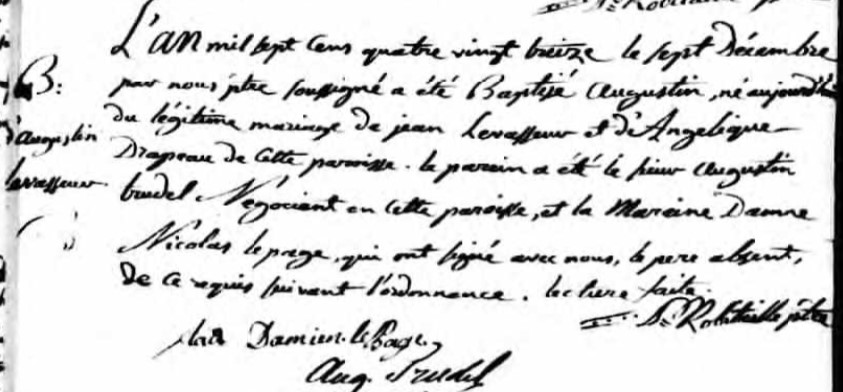 L'an mil sept cens quatre vingt treize le sept Décembre
B:
par nous ptre soussigné a été Baptisé Augustin, né aujourd'hui
d'augustin
du légitime mariage de jean Levasseur et d'Angelique
Drapeau de cette paroisse. le parein a été le sieur Augustin
levasseur
trudel Négociant en cette paroisse, et la Mareine Damne
Nicolas lepage, qui ont signé avec nous, le pere absent,
de ce requis suivant l'ordonnance. lecture faite.
Robitaille ptre
Damien. le Page
Aug. Trudel